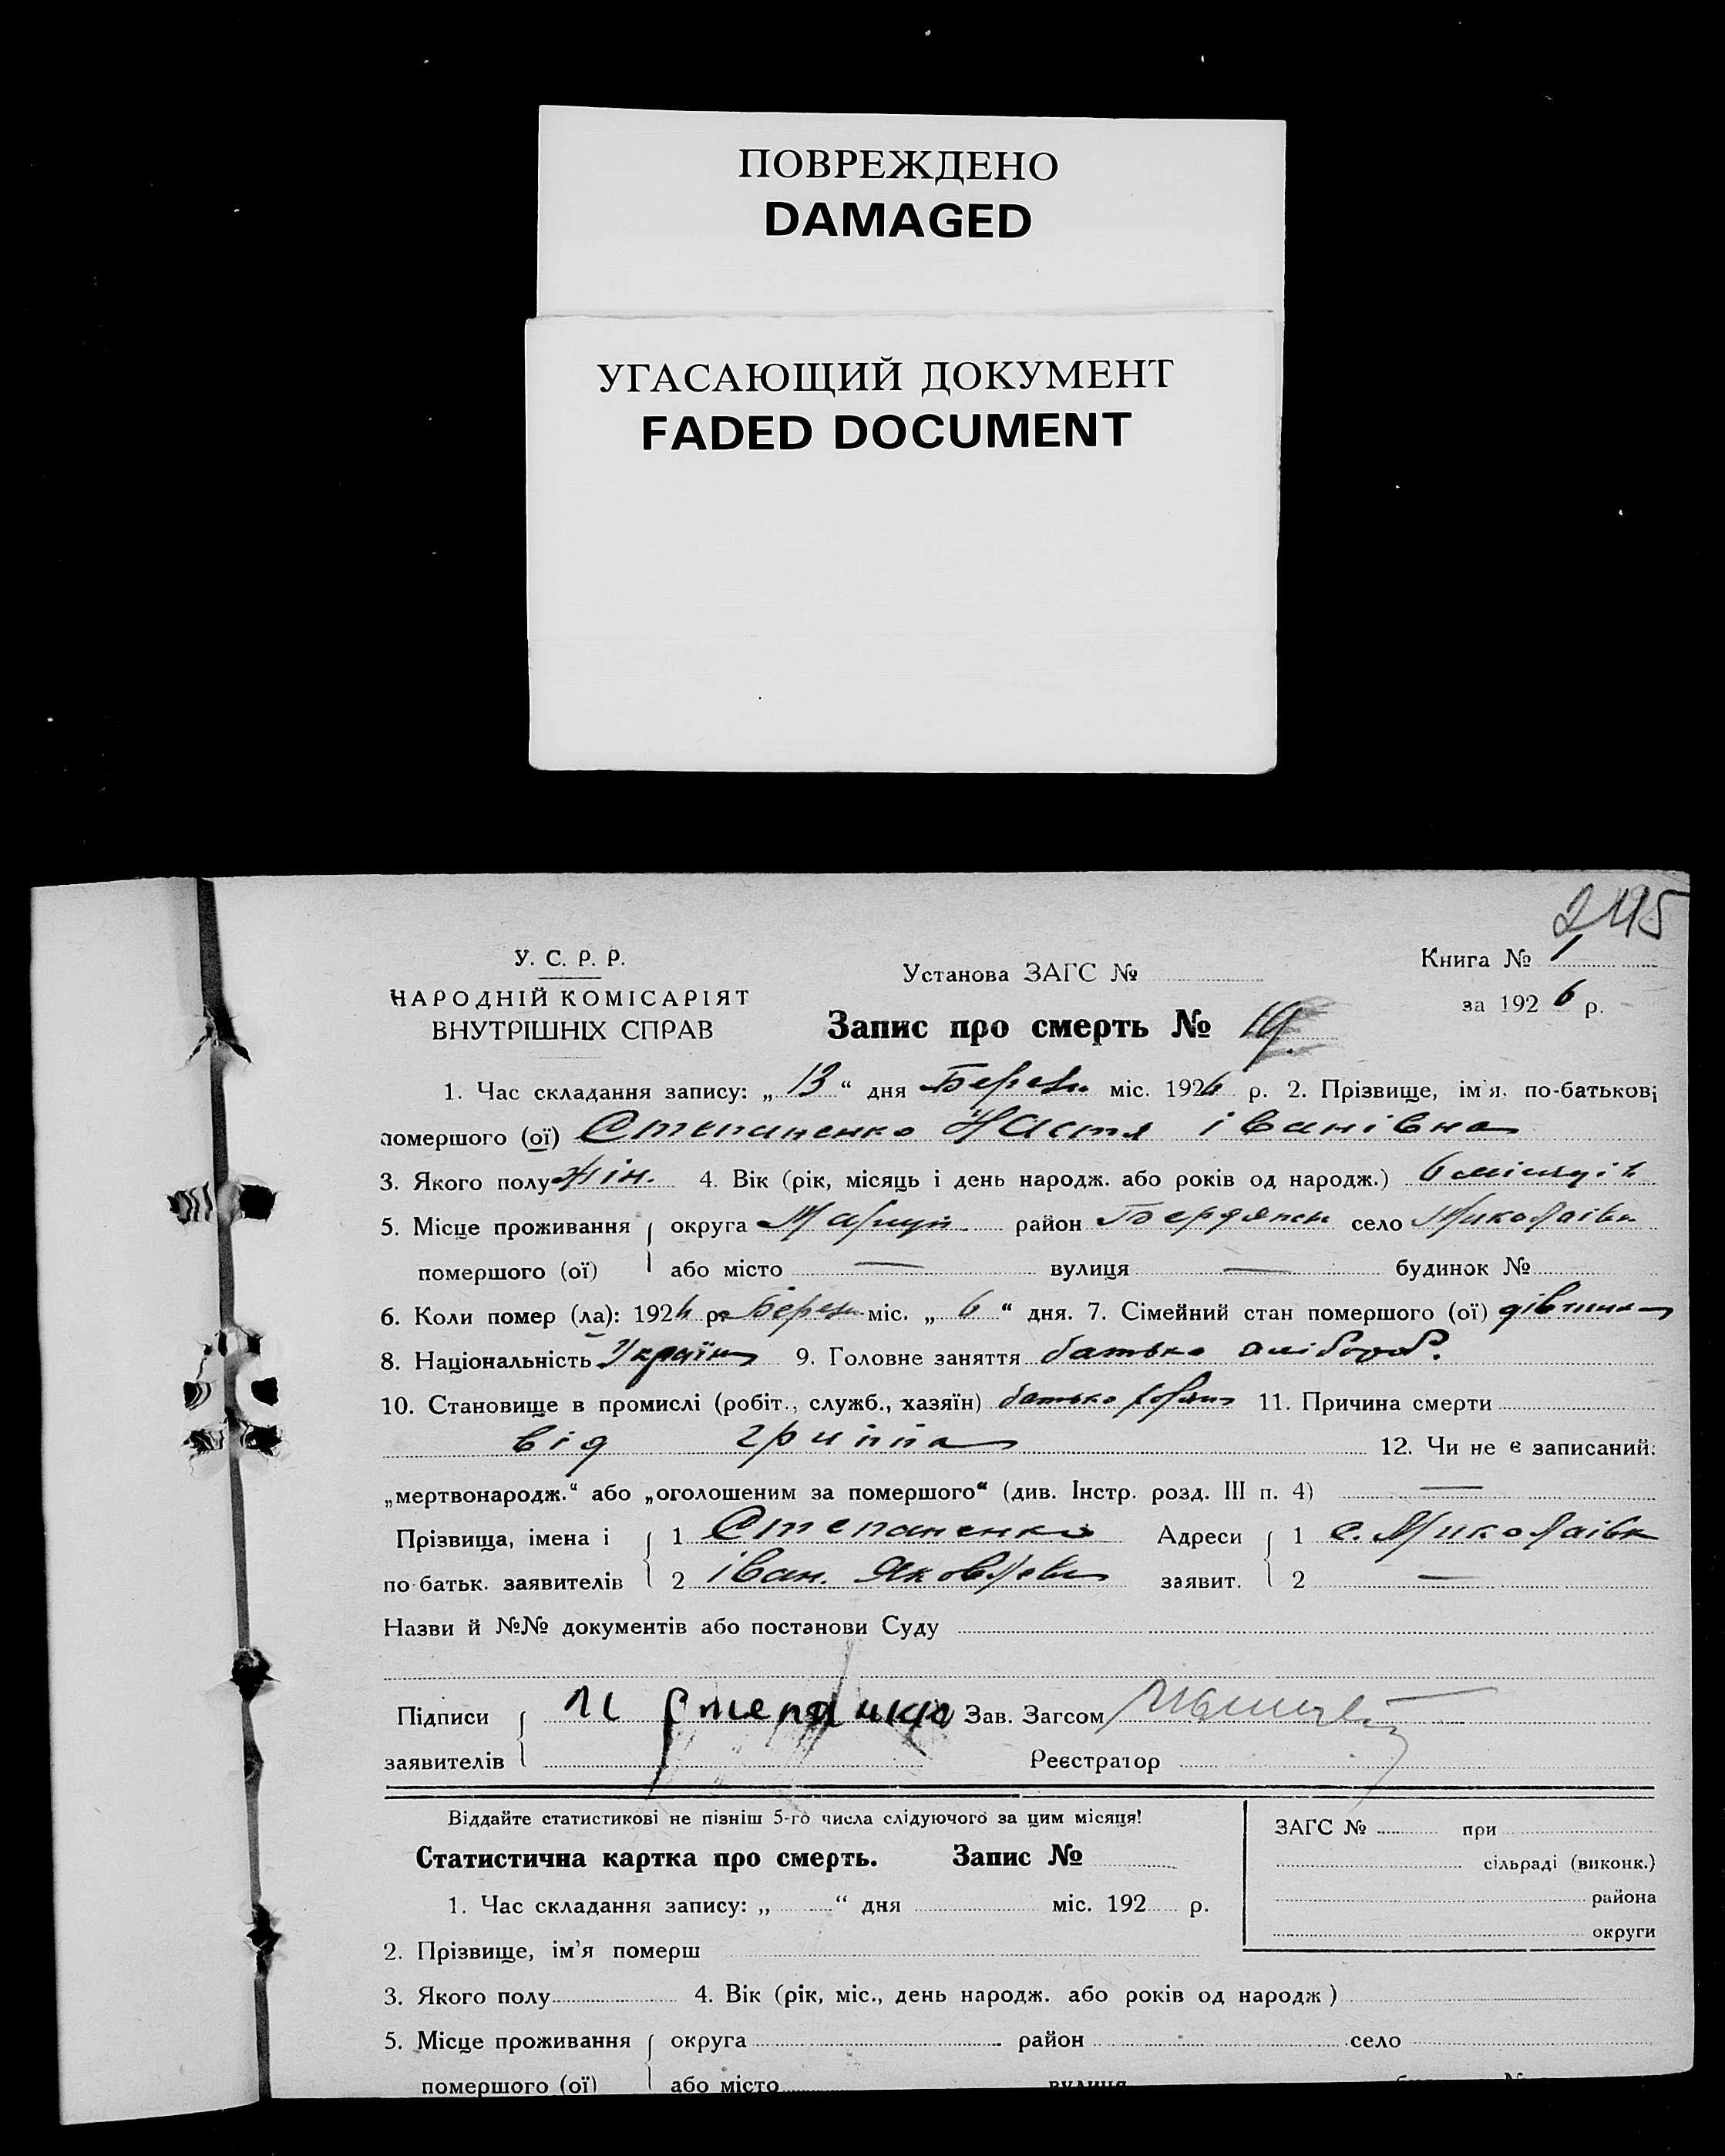 ПОВРЕЖДЕНО
DAMAGED
УГАСАЮЩИЙ ДОКУМЕНТ
FADED DOCUMENT
У. С. Р. Р.
НАРОДНІЙ КОМІСАРІЯТ
ВНУТРІШНІХ СПРАВ
Установа ЗАГС №
Книга № 1
за 1926 р.
Запис про смерть № 19.
1. Час складання запису: „ 13 “ дня Березн міс. 1926 р. 2. Прізвище, ім'я, по-батькові
помершого (ої) Степаненко Настя іванівна
3. Якого полу жін. 4. Вік (рік, місяць і день народж. або років од народж.) 6 місяців
5. Місце проживання округа Маріуп. район Бердянськ село Миколаівк
помершого (ої) або місто — вулиця — будинок №
6. Коли помер (ла): 1926 р. Березн міс. „ 6 “ дня. 7. Сімейний стан помершого (ої) дівчина
8. Національність Україн 9. Головне заняття батько хлібороб.
10. Становище в промислі (робіт., служб., хазяїн) батько хазяін 11. Причина смерти
від гриппа 12. Чи не є записаний:
„мертвонародж.“ або „оголошеним за помершого“ (див. Інстр. розд. III п. 4) —
Прізвища, імена і 1 Степаненко Адреси 1 с. Миколаівк
по батьк. заявителів 2 іван. Яковлеви заявит. 2 —
Назви й №№ документів або постанови Суду
Підписи И Степаненко Зав. Загсом
заявителів Реєстратор
Віддайте статистикові не пізніш 5-го числа слідуючого за цим місяця!
Статистична картка про смерть. Запис №
ЗАГС № при
сільраді (виконк.)
района
округи
1. Час складання запису: „ “ дня міс. 192 р.
2. Прізвище, ім'я померш
3. Якого полу 4. Вік (рік, міс., день народж. або років од народж )
5. Місце проживання округа район село
помершого (ої) або місто вулиця